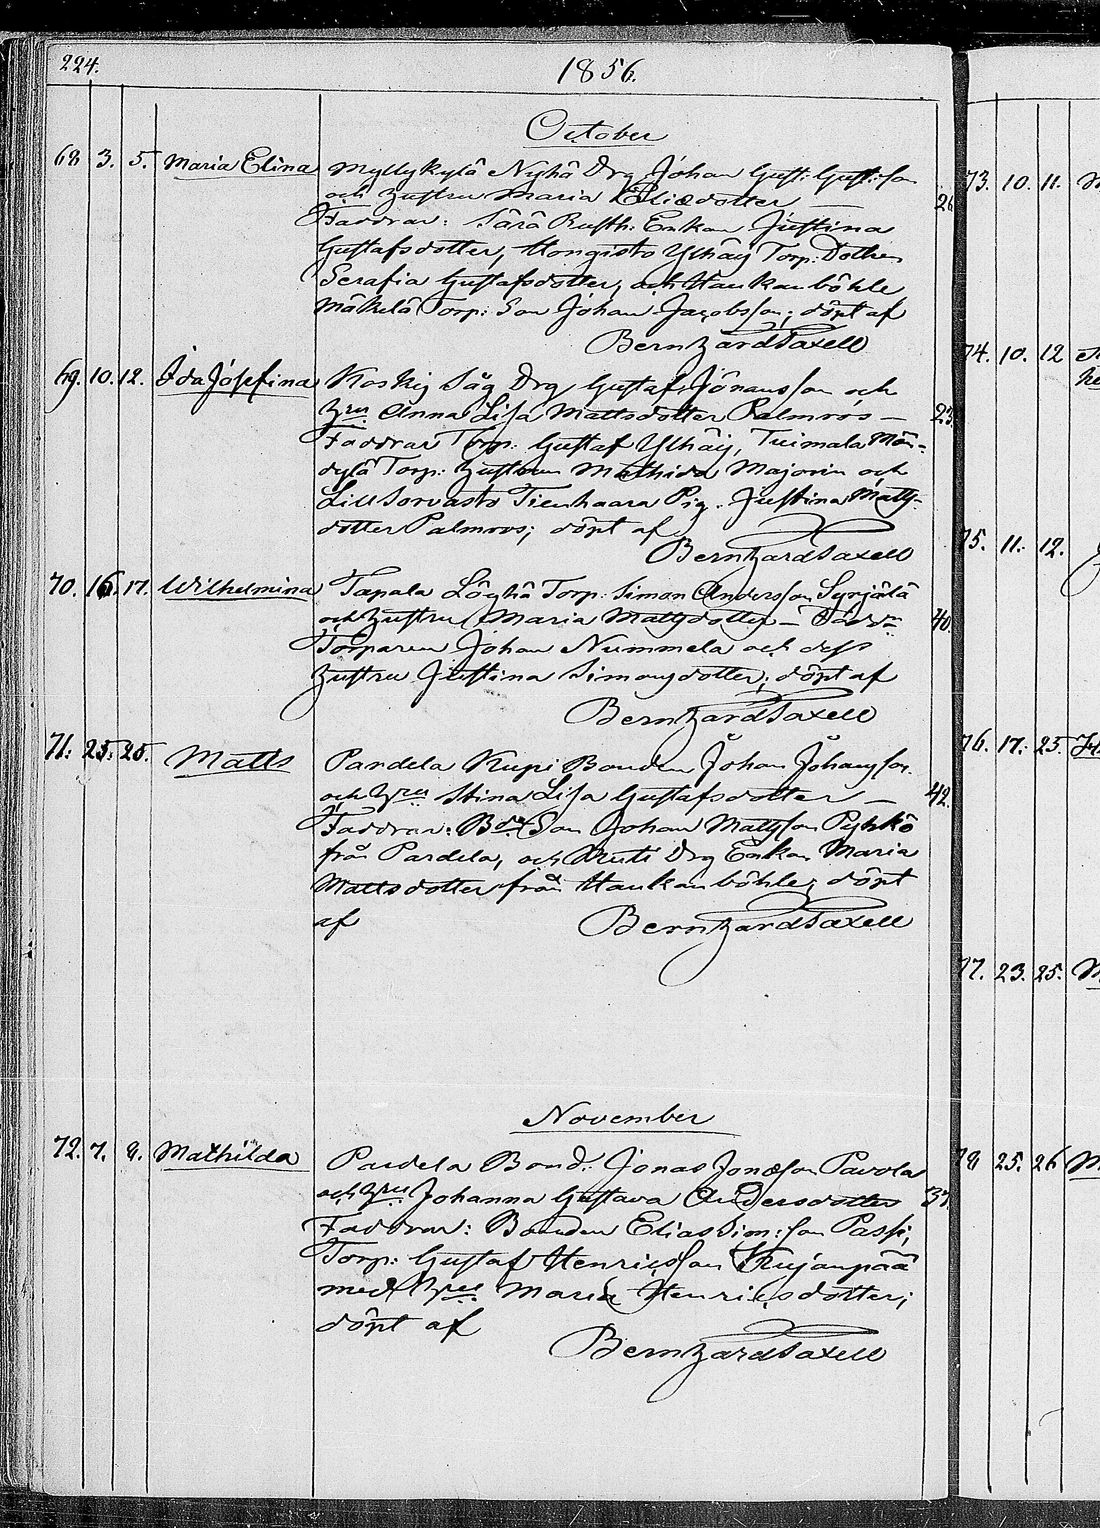 224.
1856.
October
68 3. 5. Maria Elina Myllykylä Nyhä Drg Johan Gust: Gust:son
och hustru Maria Eliædotter — 26
Faddrar: Särä Rusth: Enkan Justina
Gustafsdotter, Hongisto Ylhäij Torp: Dottren
Serafia Gustafsdotter, och Haukanböhle
Mäkelä Torp: Son Johan Jacobsson; döpt af
Bernhard Saxell
69. 10. 12. Ida Josefina Koskis Såg Drg Gustaf Johansson och
hru Anna Lisa Mattsdotter Palmros — 23
Faddrar Torp: Gustaf Ylhäij, Tuimala
Torp: hustrun Mathilda Majorin och
Lill Sorvasto Tienhaara Pig. Justina Matts-
dotter Palmros; döpt af
Bernhard Saxell
70. 16. 17. Wilhelmina Tapala Löyhä Torp: Simon Andersson Syrjälä
och hustru Maria Mattsdotter — Fadd: 40.
Torparen Johan Nummela och dess
hustru Justina Simonsdotter; döpt af
Bernhard Saxell
71. 25. 25. Matts Pardela Kupi Bonden Johan Johansson
och hru Stina Lisa Gustafsdotter — 42.
Faddrar: Bde Son Johan Mattsson Pyhkö
från Pardela, och Knuti Drg Enkan Maria
Mattsdotter från Haukanböhle; döpt
af Bernhard Saxell
November
72. 7. 9. Mathilda Pardela Bond: Jonas Jonæson Pavola
och hru Johanna Gustava Andersdotter 37.
Faddrar: Bonden Elias Sim:son Passi,
Torp: Gustaf Henricsson Kujanpää
med hru Maria Henricsdotter;
döpt af
Bernhard Saxell
73. 10. 11.
74. 10. 12
75. 11. 12.
76. 17. 25.
77. 23. 25.
78 25. 26